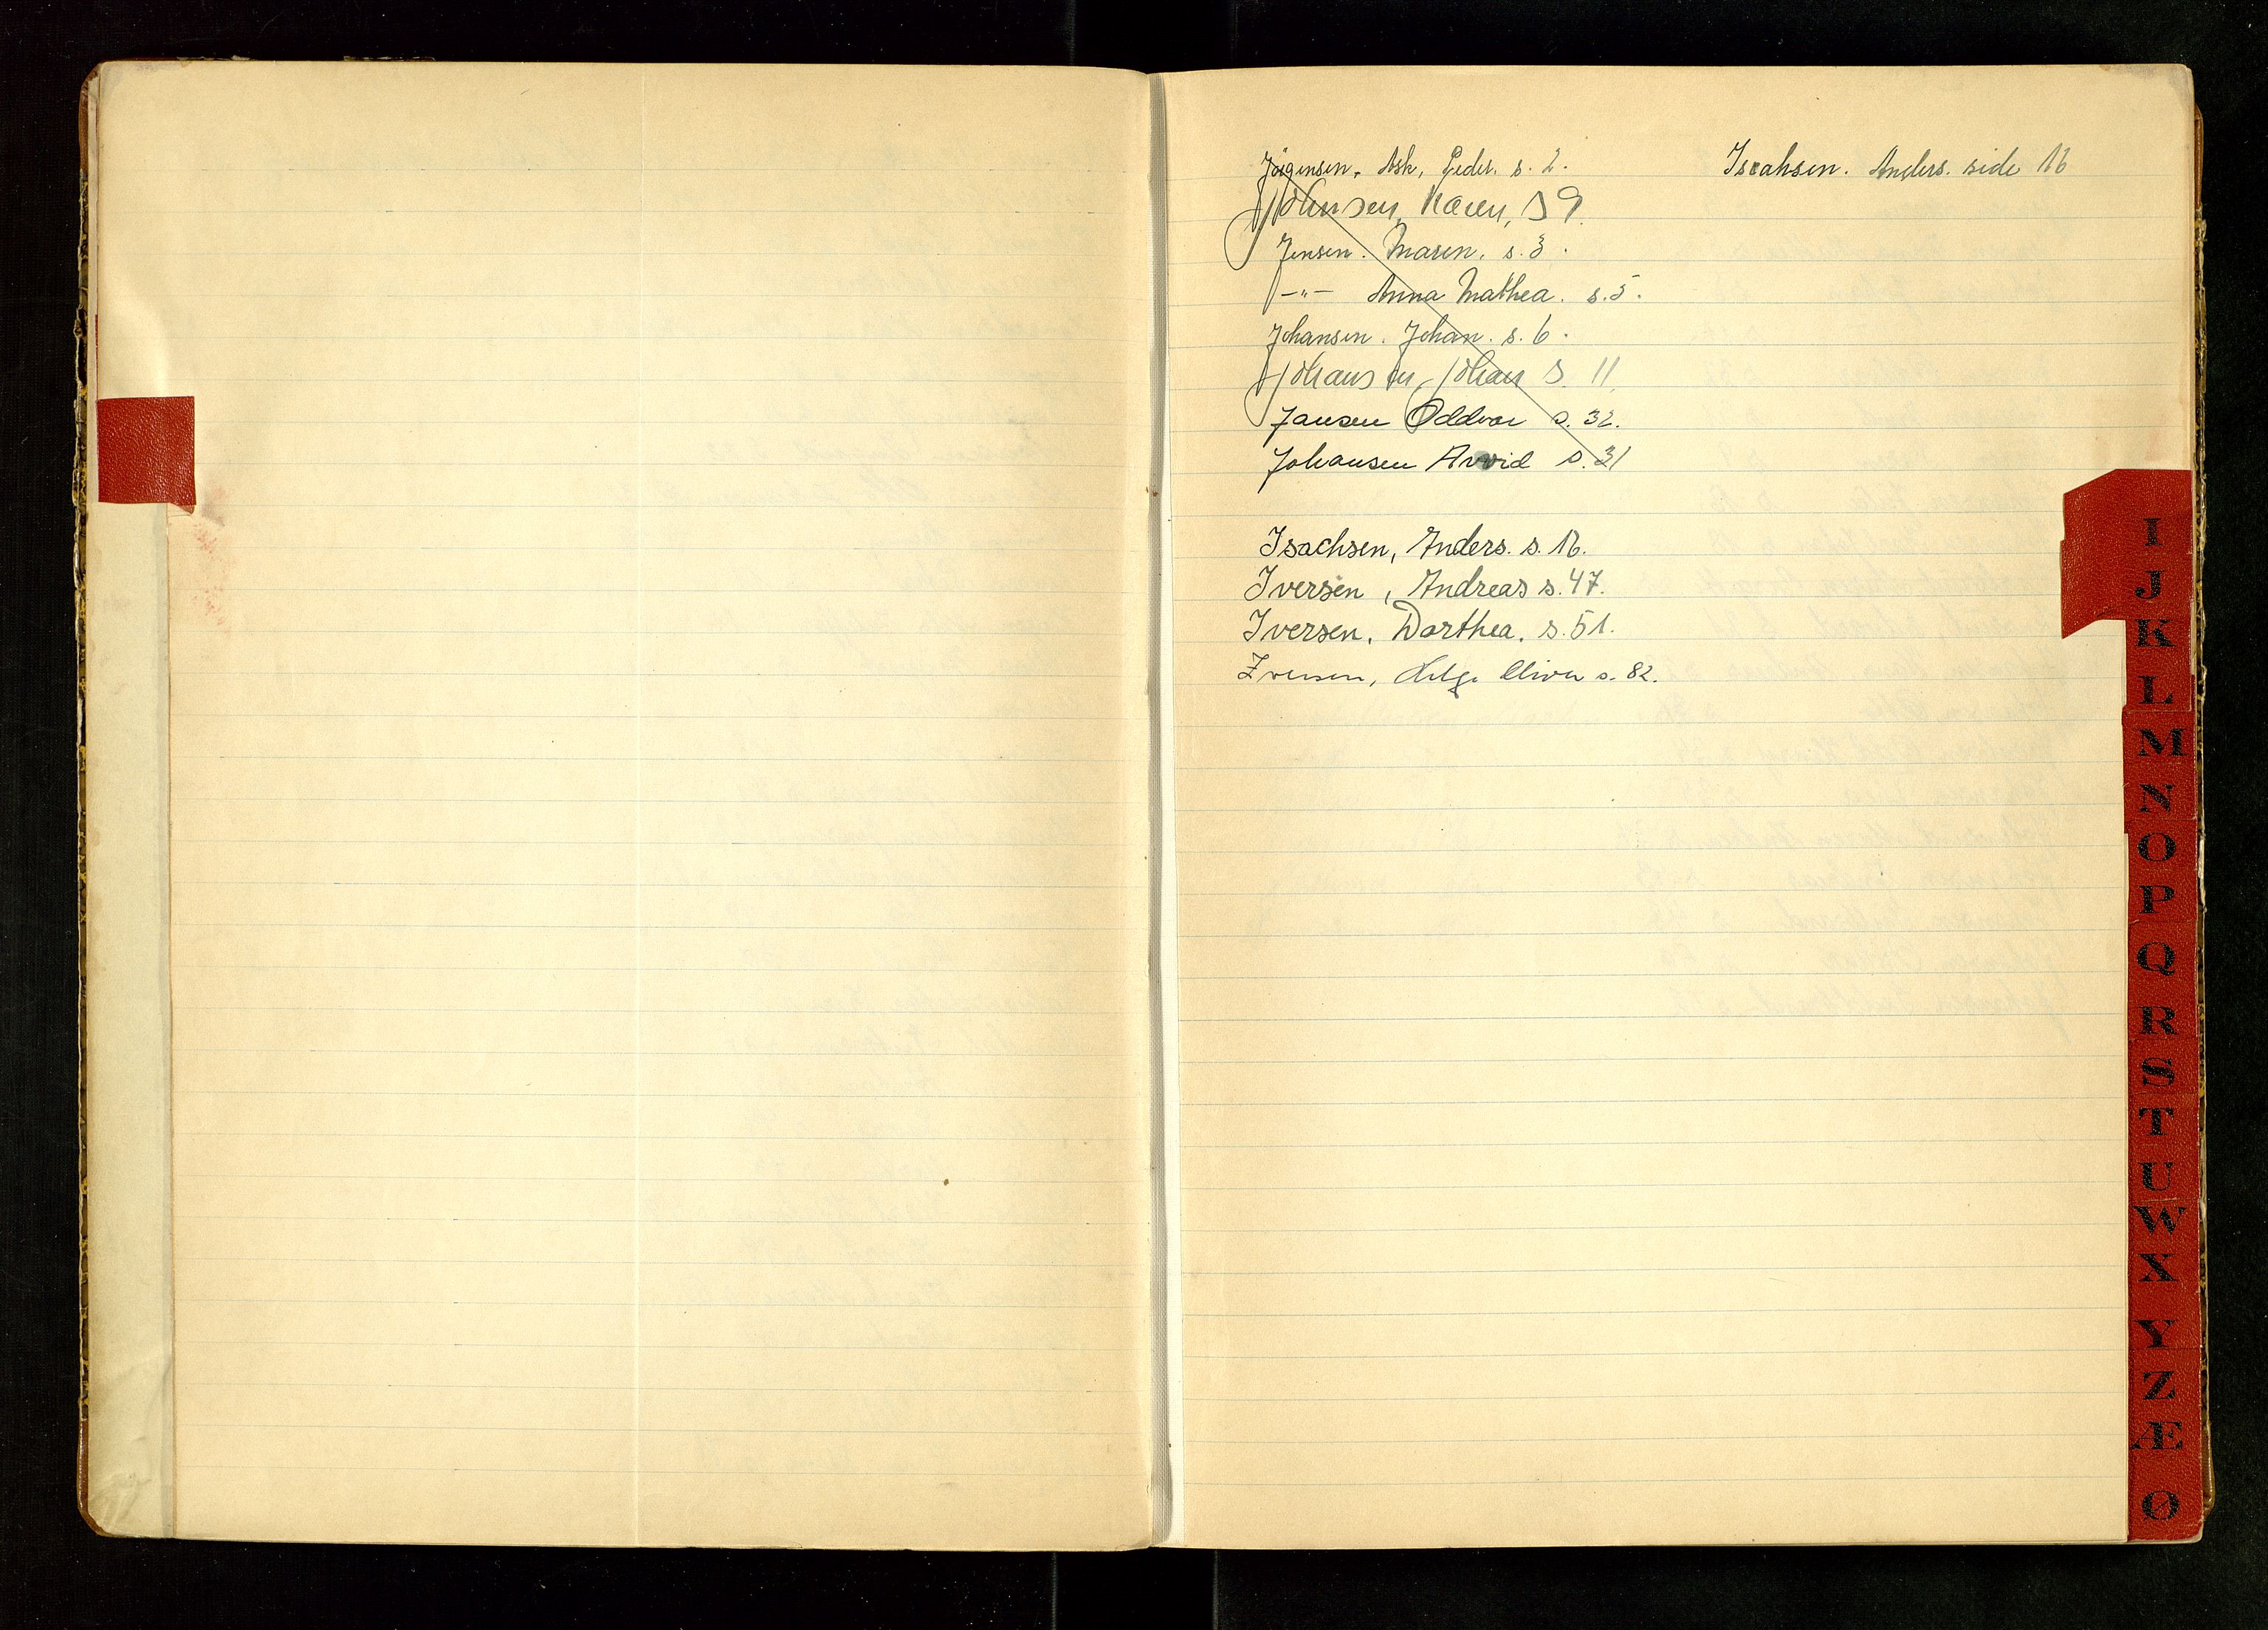 Jørgensen, Ask, Peder. s. 2.
Johnsen, Karen, S 9.
Jensen. Maren. s. 3.
-"- Anna Mathea. s. 5.
Johansen. Johan. s. 6.
Johansen, Johan S. 11.
Jansen Oddvar s. 32.
Johansen Arvid s. 31
Isachsen, Anders. s. 16.
Iversen, Andreas s. 47.
Iversen, Dorthea. s. 51.
Iversen, Helge Oliver s. 82.
Isaksen. Anders. side 16
I
J
K
L
M
N
O
P
Q
R
S
T
U
W
X
Y
Z
Æ
Ø